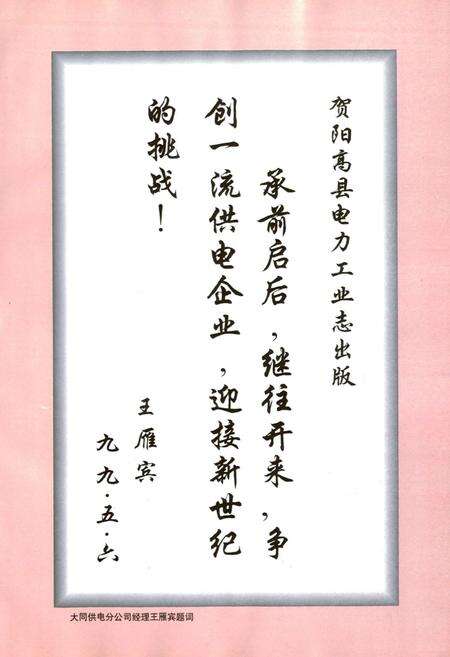 贺阳高县电力工业志出版
承前启后，继往开来，争
创一流供电企业，迎接新世纪
的挑战！
王雁宾
九九·五·六
大同供电分公司经理王雁宾题词